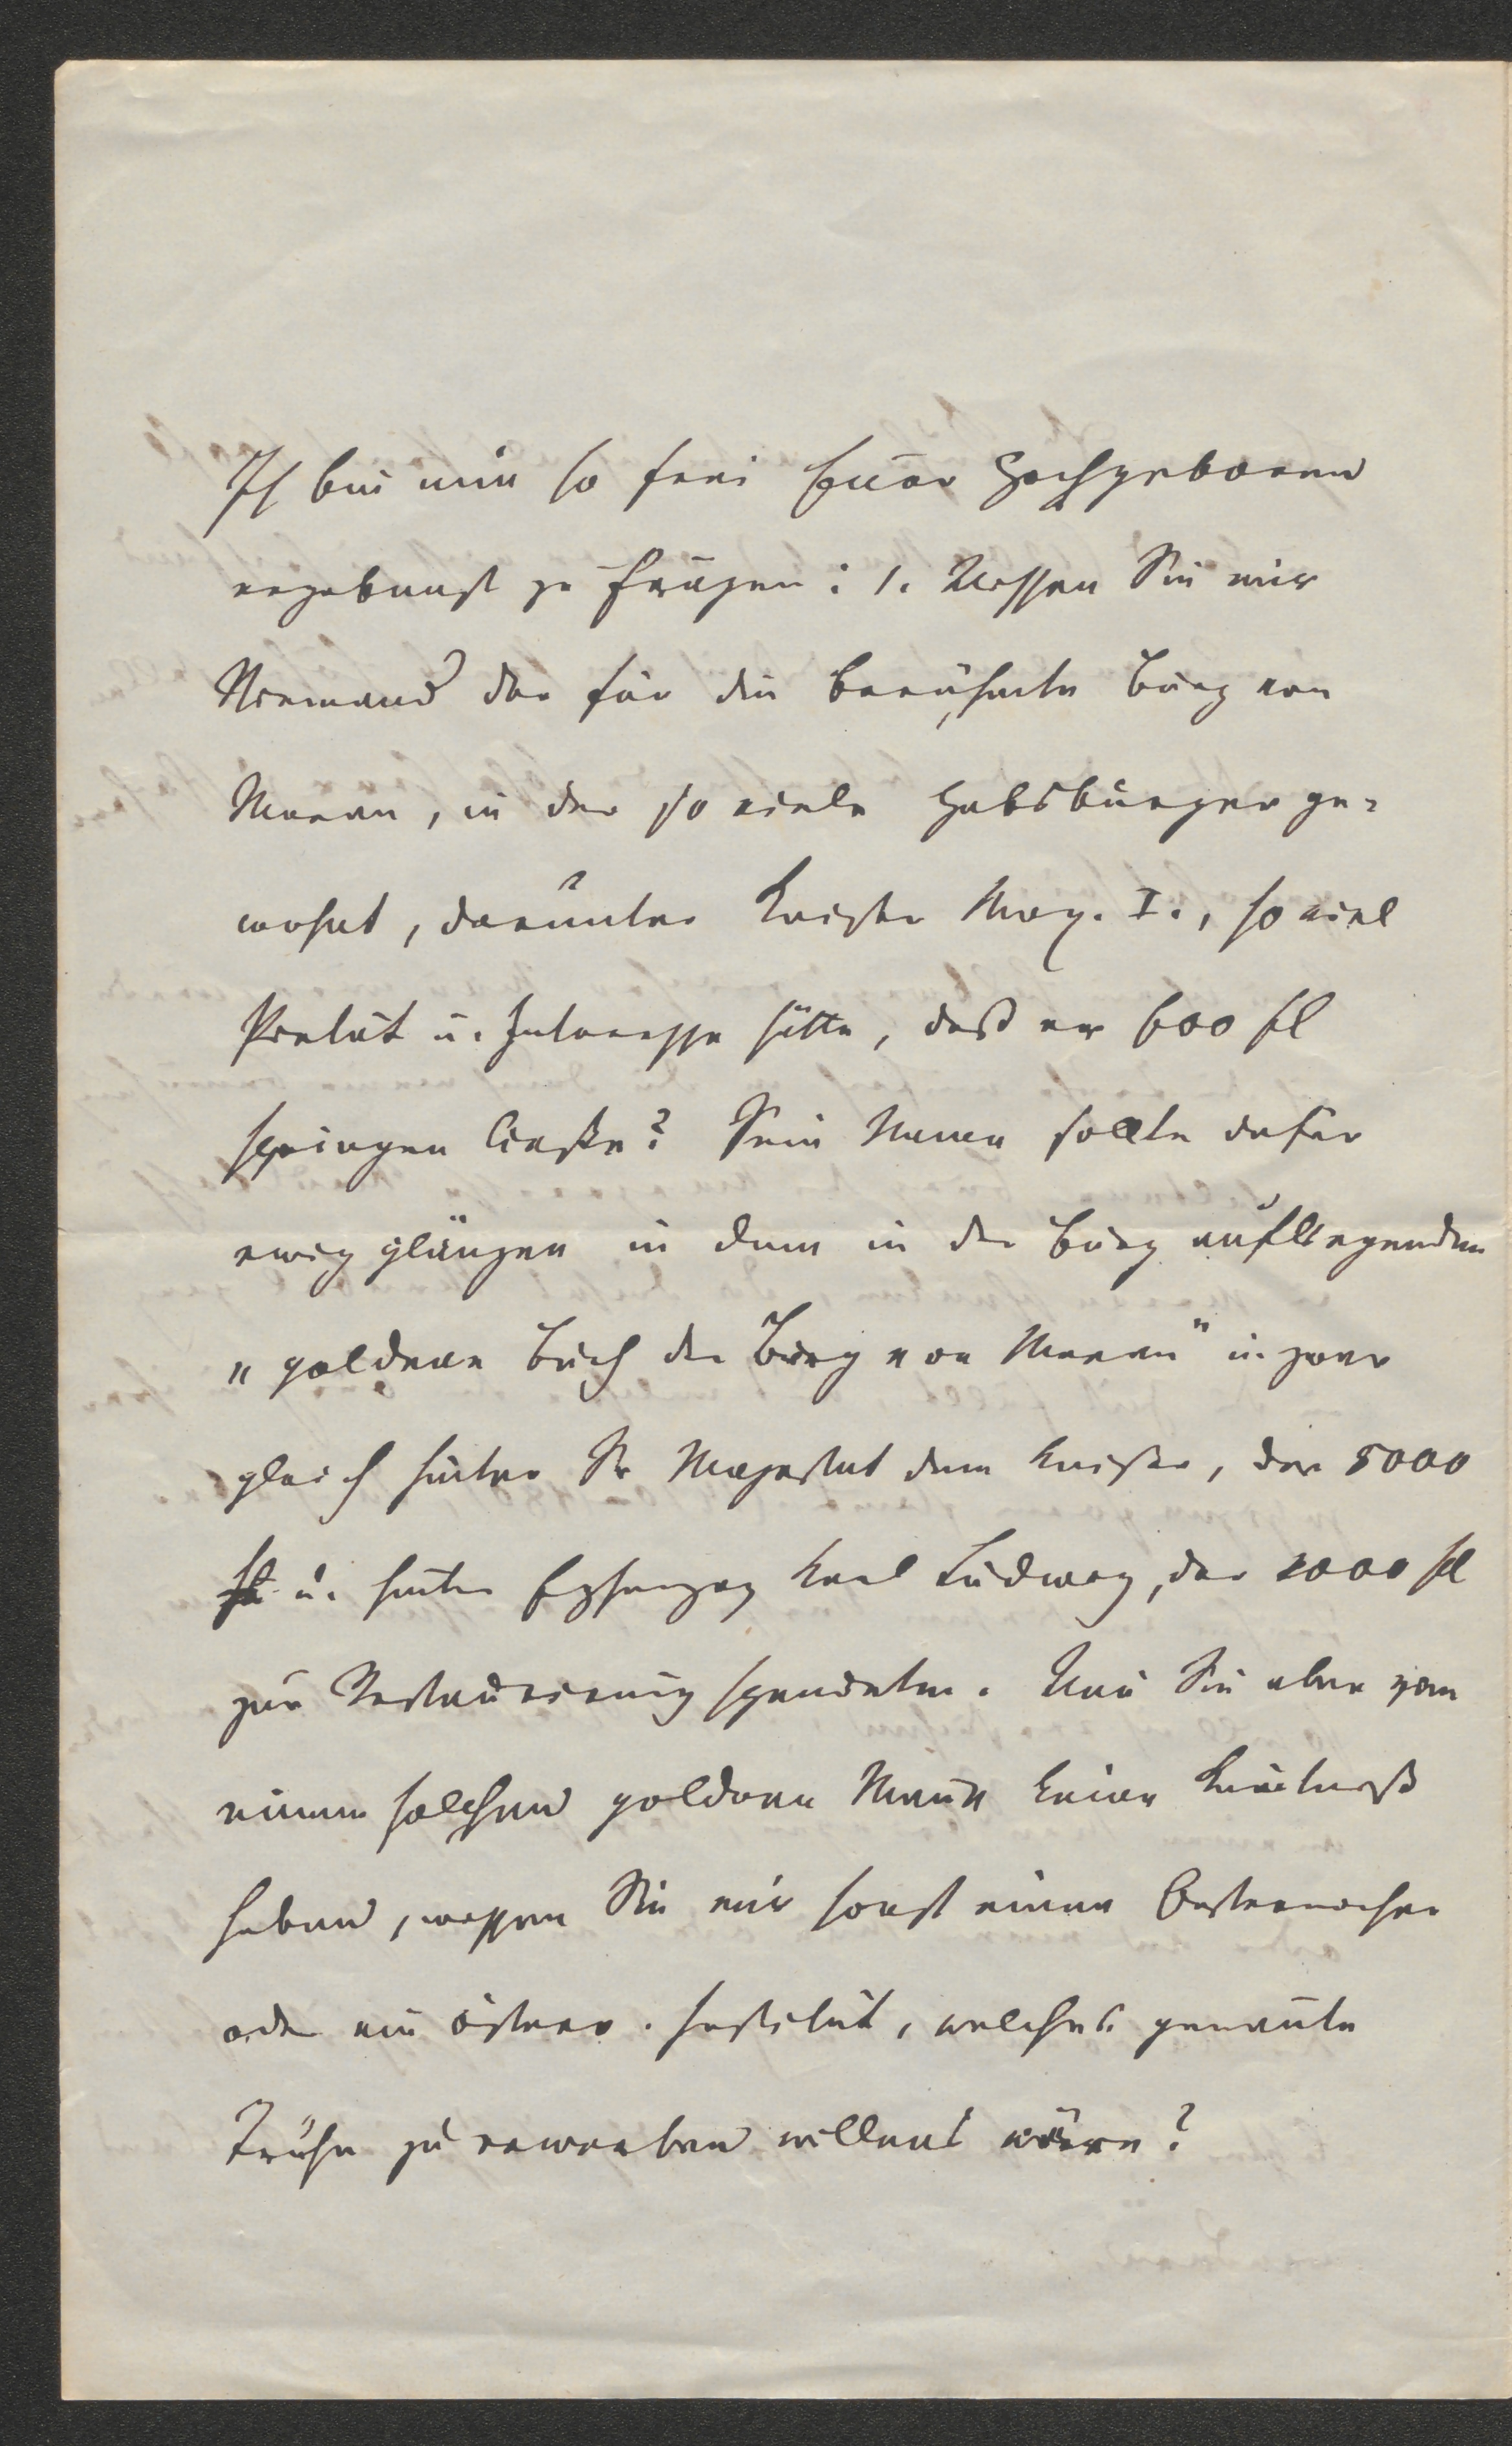 Ich bin nun so frei Euer Hochgeboren
ergebenst zu fragen: 1. Wissen Sie mir
Niemand der für die berühmte Burg von
Meran, in der so viele Habsburger ge-
wohnt, darunter Kaiser Max. I., so viel
Pietät u. Interesse hätte, daß er 600 fl
springen ließe? Sein Name sollte dafür
ewig glänzen in dem in der Burg aufliegenden
"goldenen Buch der Burg von Meran" u. zwar
gleich hinter Sr Majestät dem Kaiser, der 5000
fl u. hinter Erzherzog Karl Ludwig, der 2000 fl
zur Restaurierung spendeten. Wen Sie aber von
einem solchen goldenen Mann keine Kentniß
haben, wissen Sie mir sonst einen Oesterreicher
oder ein österr. Institut, welches genannte
Truhe zu erwerben willens wäre?